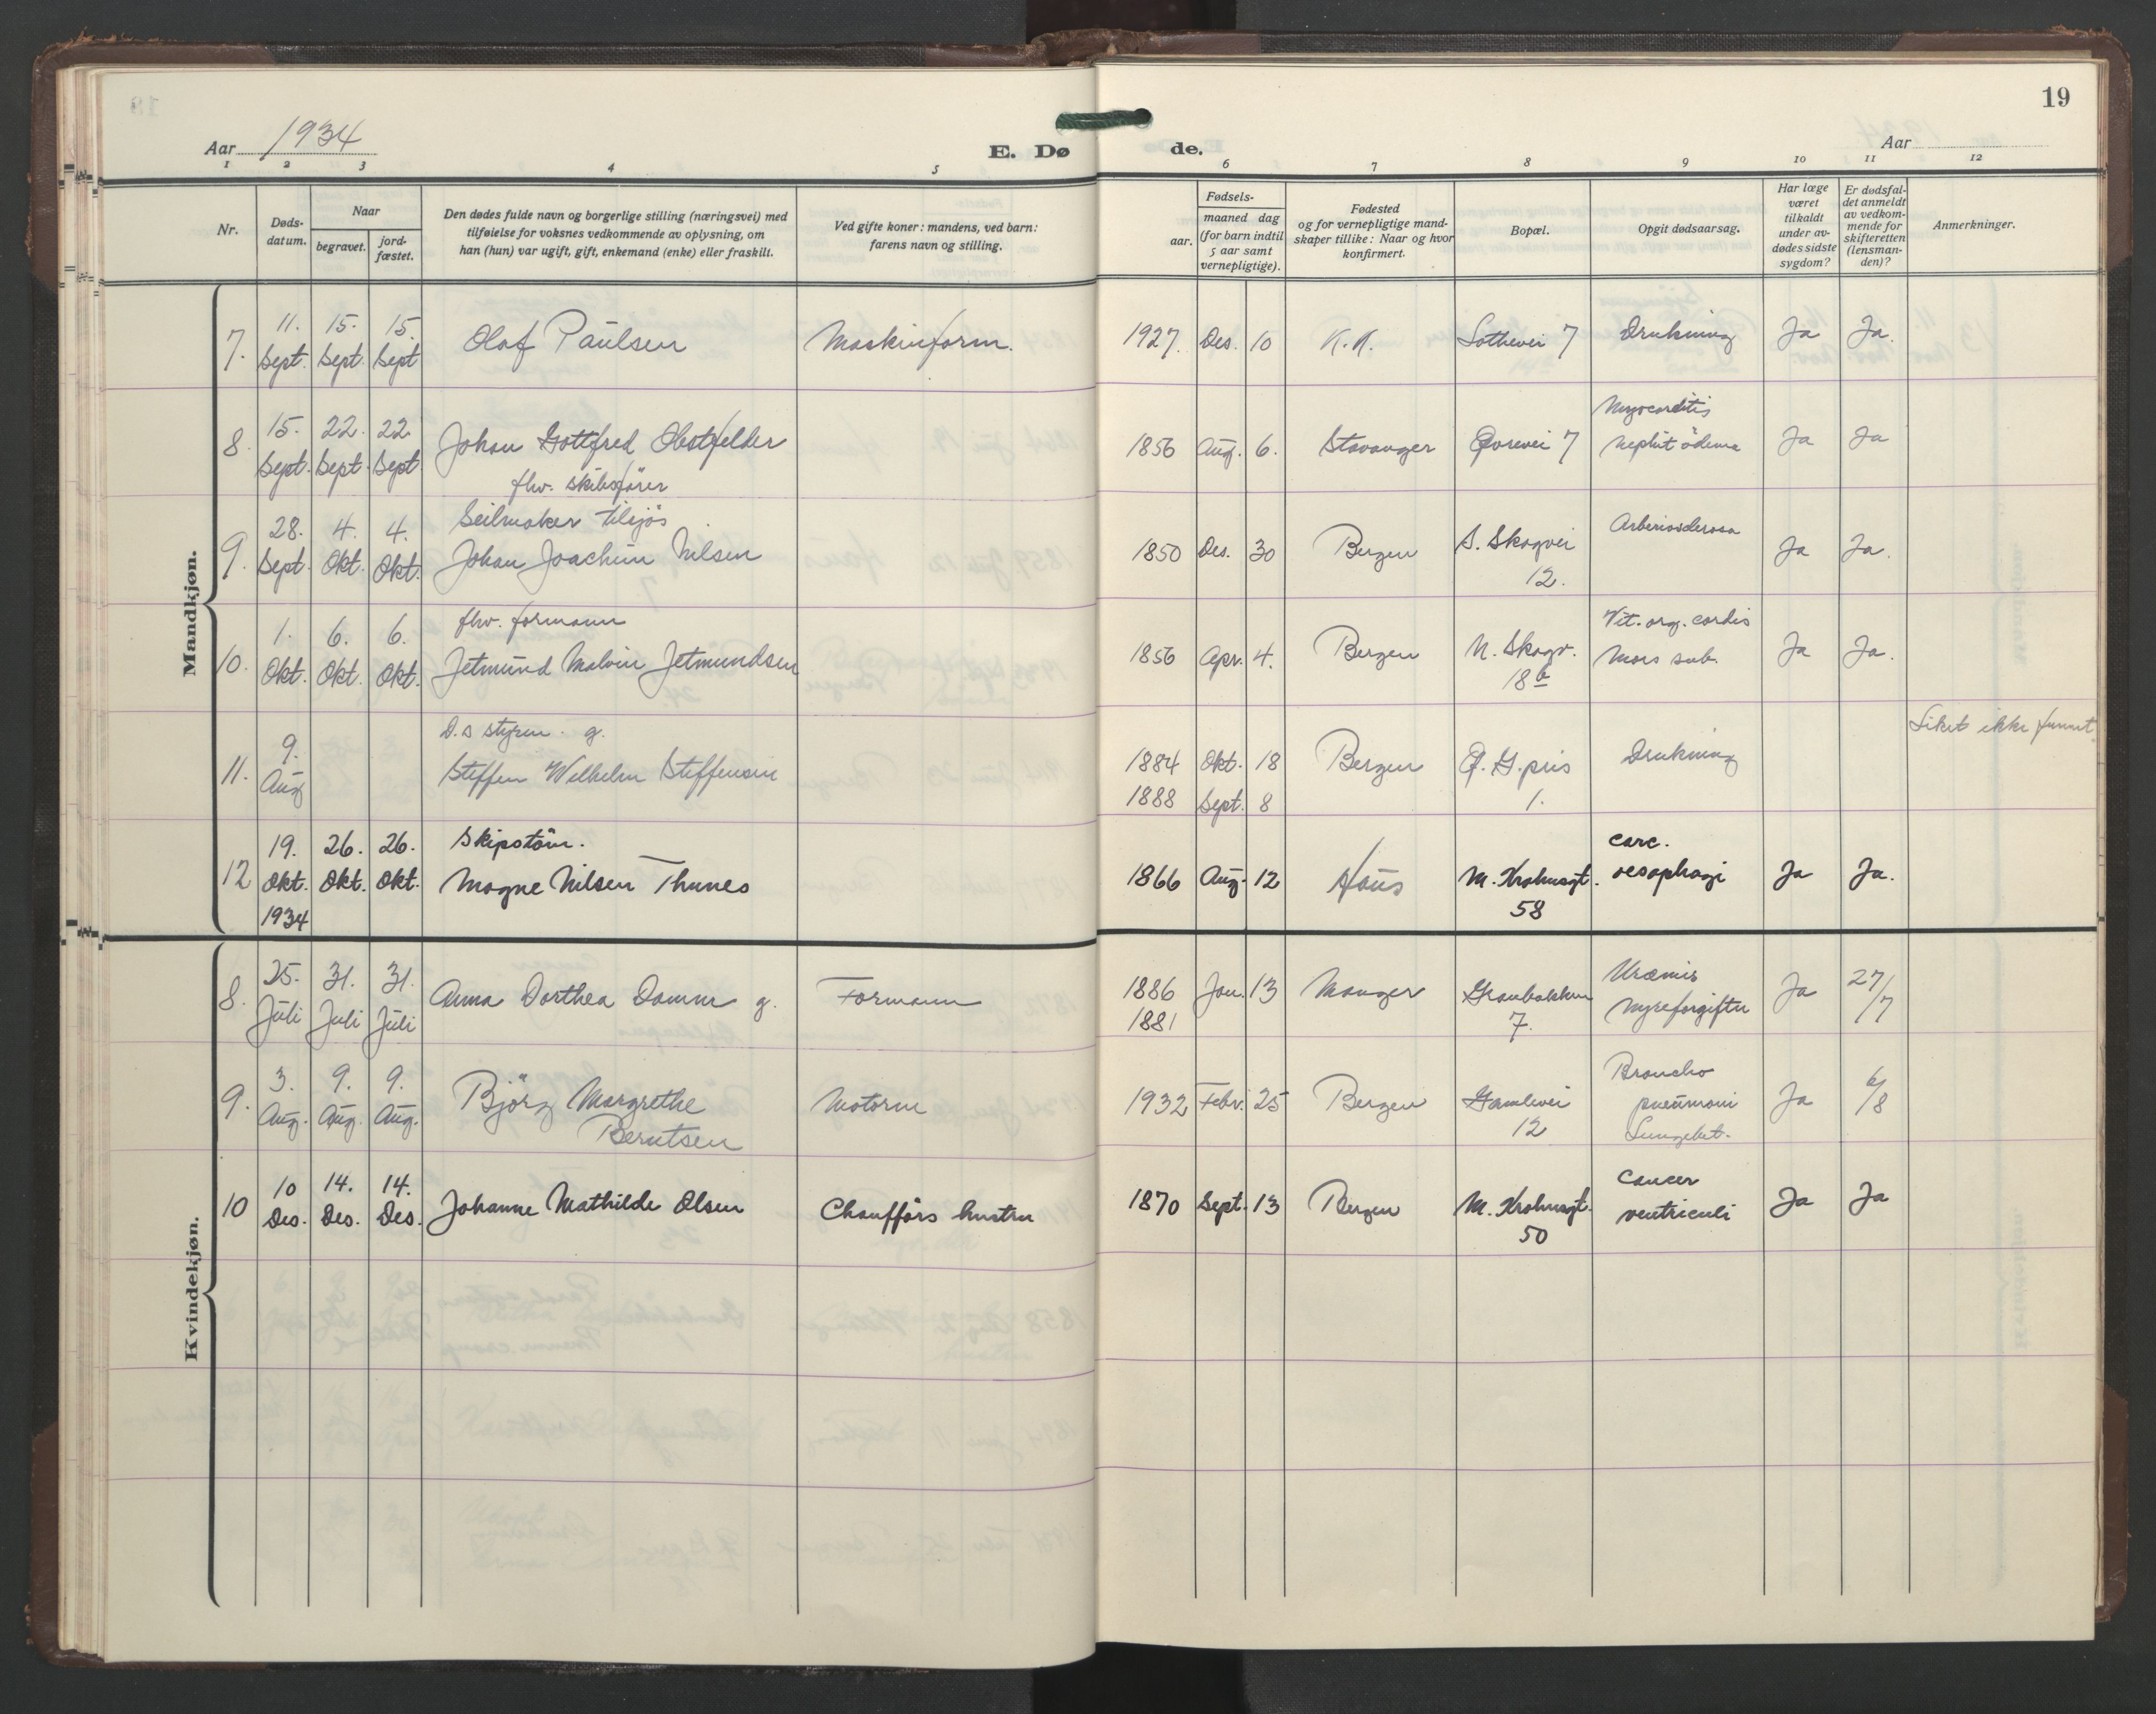 19
Aar 1934
E. Dø
de.
Aar
1 2 3 4 5 6 7 8 9 10 11 12
Nr.
Døds-
datum.
Naar
begravet.
jord-
fæstet.
Den dødes fulde navn og borgerlige stilling (næringsvei) med
tilføielse for voksnes vedkommende av oplysning, om
han (hun) var ugift, gift, enkemand (enke) eller fraskilt.
Ved gifte koner: mandens, ved barn:
farens navn og stilling.
Fødsels-
aar.
maaned dag
(for barn indtil
5 aar samt
vernepligtige).
Fødested
og for vernepligtige mand-
skaper tillike: Naar og hvor
konfirmert.
Bopæl.
Opgit dødsaarsag.
Har læge
været
tilkaldt
under av-
dødes sidste
sygdom?
Er dødsfal-
det anmeldt
av vedkom-
mende for
skifteretten
(lensman-
den)?
Anmerkninger.
Mandkjøn.
7. 11. Sept. 15. Sept. 15. Sept Olaf Paulsen Maskinform. 1927. Des. 10 K.K. Lothevei 7 Drukning Ja Ja.
8. 15. Sept. 22. Sept. 22 Sept Johan Gottfred Obstfelder
fhv. skibsfører
1856 Aug. 6. Stavanger 7
Myocarditis
Ja Ja
9. 28. Sept. 4. Okt. 4. Okt. Seilmaker tilsjös
Johan Joachim Nilsen
1850 Des. 30 Bergen S. Skogvei
12.
Ja Ja.
10. 1. Okt. 6. Okt. 6. Okt. fhv. formann
Jetmund Malvin Jetmundsen
1856 Apr. 4. Bergen N. Skogv.
18 b
Vit. org. cordis
Mors sub.
Ja Ja.
11. 9. Aug D.s styrm. g.
Steffen Wilhelm Steffensen
1884 Okt. 18 Bergen
1888 Sept. 8
1.
Drukning
Liket ikke funnet.
12 19. Okt. 1934 26. Okt. 26. Okt. Skipstöm.
Magne Nilsen Thunes
1866 Aug. 12 Haus M. Krohnsgt.
58
carc.
oesophagi
Ja Ja.
Kvindekjøn.
8. 25. Juli 31. Juli 31. Juli Anna Dorthea Damm g. Formann
1886 Jan. 13 Manger
1881
7.
Uræmis
Nyreforgiftn
Ja 27/7
9. 3. Aug. 9. Aug. 9. Aug. Björg Margrethe
Berntsen
Motorm
1932 Febr. 25 Bergen Gamlevei
12
Broncho
pneumoni
Lungebet.
Ja 6/8
10 10 Des. 14. Des. 14. Des. Johanne Mathilde Olsen Chaufførs hustru
1870 Sept. 13 Bergen M. Krohnsgt.
50
Cancer
ventriculi
Ja Ja